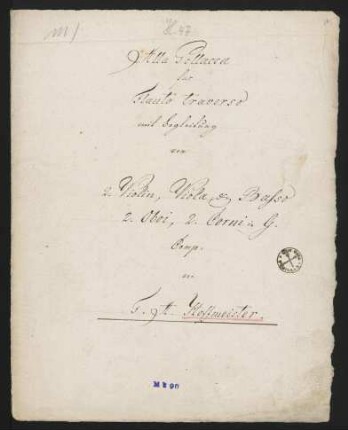 Alla Pollacca
für
Flauto traverso
mit Begleitung
von
2. Violin, Viola, & Basso
2. Oboi, 2. Corni in G.
Comp.
von
F. A. Hoffmeister.
M B 90